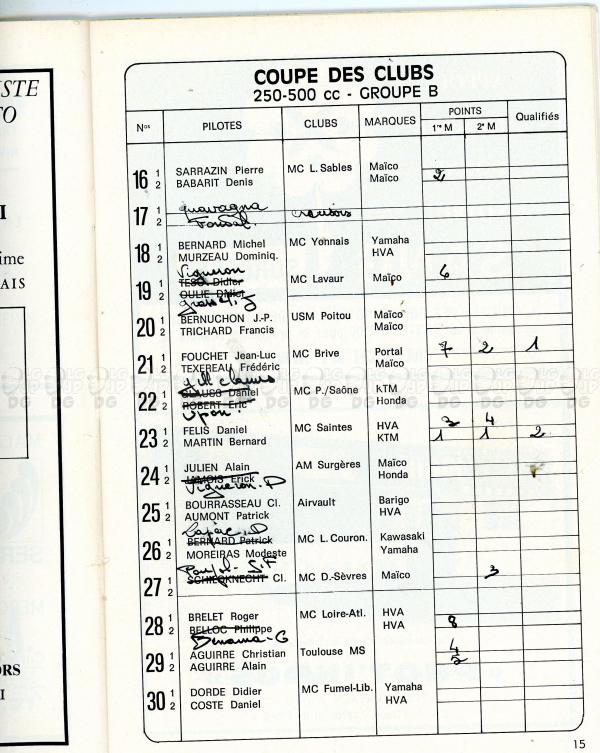 ISTE
TO
I
ime
AIS
ORS
I
COUPE DES CLUBS
250-500 cc - GROUPE B
Nos PILOTES CLUBS MARQUES POINTS Qualifiés
1re M 2e M
16 1 SARRAZIN Pierre MC L. Sables Maïco
2 BABARIT Denis Maïco 2
17 1
2
18 1 BERNARD Michel MC Yonnais Yamaha
2 MURZEAU Dominiq. HVA
Vigneron
19 1 TESO Didier MC Lavaur Maïço 6
2 OULIE Didier
20 1 BERNUCHON J.-P. USM Poitou Maïco
2 TRICHARD Francis Maïco
21 1 FOUCHET Jean-Luc MC Brive Portal 7 2 1
2 TEXEREAU Frédéric Maïco
22 1 CLAUSS Daniel MC P./Saône KTM
2 ROBERT Eric Honda
23 1 FELIS Daniel MC Saintes HVA 3 4
2 MARTIN Bernard KTM 1 1 2
24 1 JULIEN Alain AM Surgères Maïco
2 Erick Honda
Vigneron. D
25 1 BOURRASSEAU Cl. Airvault Barigo
2 AUMONT Patrick HVA
26 1 BERNARD Patrick MC L. Couron. Kawasaki
2 MOREIRAS Modeste Yamaha
27 1 SCHIEGKNECHT Cl. MC D.-Sèvres Maïco 3
2
28 1 BRELET Roger MC Loire-Atl. HVA
2 BELLOC Philippe HVA 8
29 1 AGUIRRE Christian Toulouse MS 4
2 AGUIRRE Alain
30 1 DORDE Didier MC Fumel-Lib. Yamaha
2 COSTE Daniel HVA
15